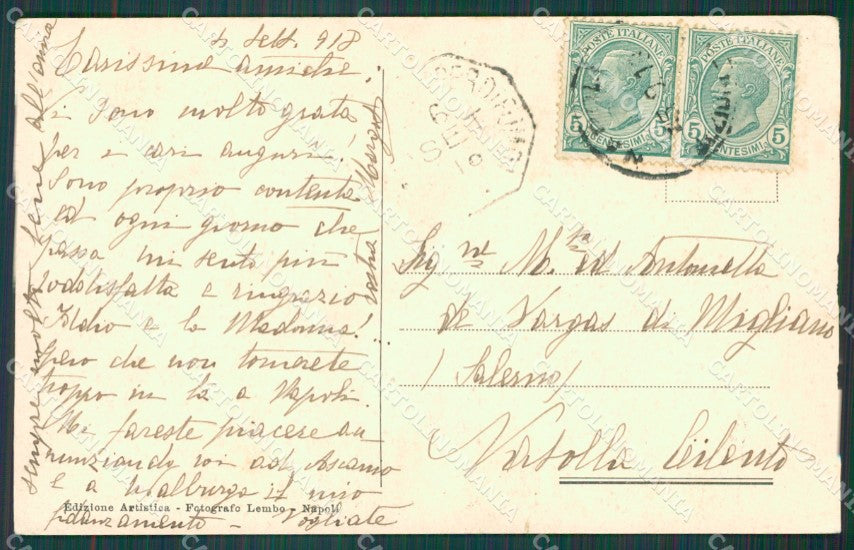 Sett. 918
Carissime amiche,
Sono molto grata
per i cari auguri!
Sono proprio contenta
ed ogni giorno che
passa mi sento più
soddisfatta e ringrazio
Iddio e la Madonna!
Spero che non tornerete
troppo in là a Napoli.
Mi fareste piacere an
nunziando voi ad Ascanio
e a Walburga il mio
fidanzamento - Vogliate
sempre molto bene all'amica
vostra
Sig.ne M.ia ed Antonietta
de Vargas di Migliano
(Salerno)
Vatolla Cilento
POSTE ITALIANE
5 5
CENTESIMI
POSTE ITALIANE
5 5
CENTESIMI
Edizione Artistica - Fotografo Lembo - Napoli
CARTOLINOMANIA